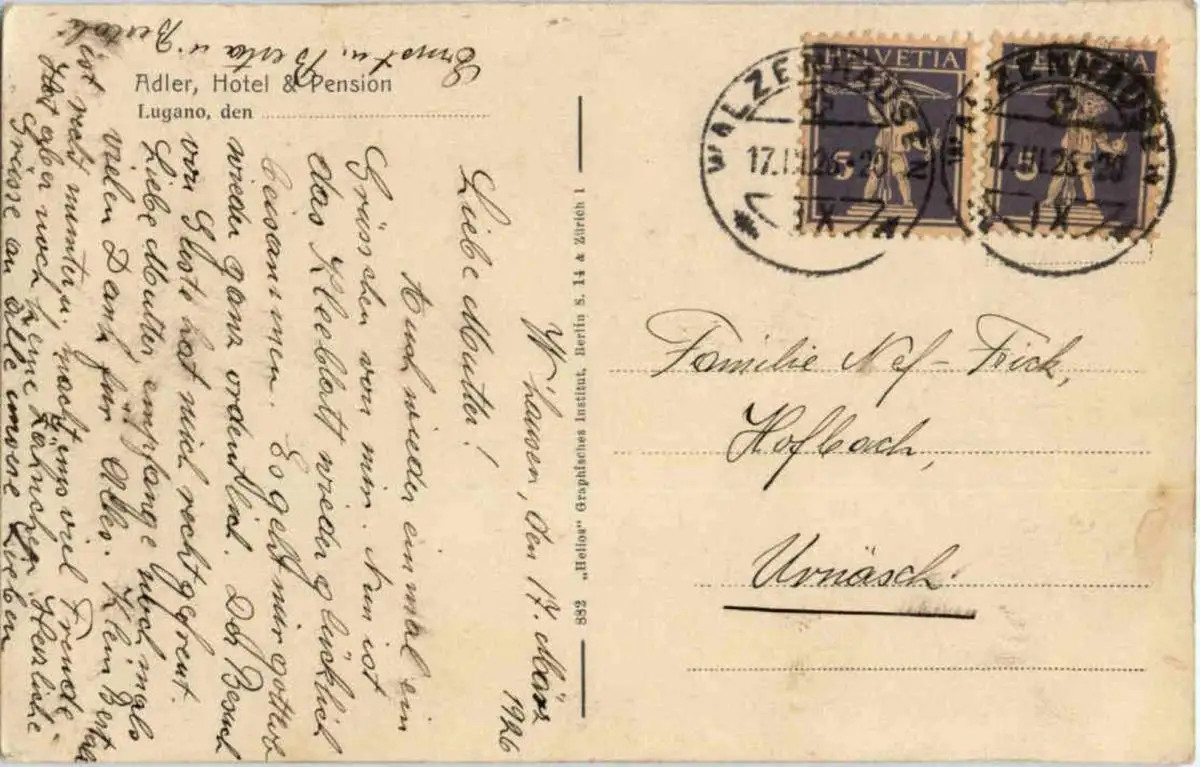 Adler, Hotel & Pension
Lugano, den
W'hausen, den 17. März 1926
Liebe Mutter!
Auch wieder einmal ein
Grüsschen von mir. Nun ist
das Kleeblatt wieder glücklich
beisammen. Es geht mir gottlob
wieder ganz ordentlich. Der Besuch
von hat mich recht gefreut.
Liebe Mutter empfange nochmals
vielen Dank für Alles. Klein Berteli
ist recht munter u. macht uns viel Freude
Hat aber noch keine Zähnchen. Herzliche
Grüsse an Alle unsere Lieben
Ernst u. Berta u. Berteli
882 „Helios" Graphisches Institut, Berlin S. 14 & Zürich 1
HELVETIA
5
HELVETIA
5
WALZENHAUSEN
17.III.26.-20
IX
WALZENHAUSEN
17.III.26.-20
IX
Familie Nef-Frick,
Hofbach,
Urnäsch.